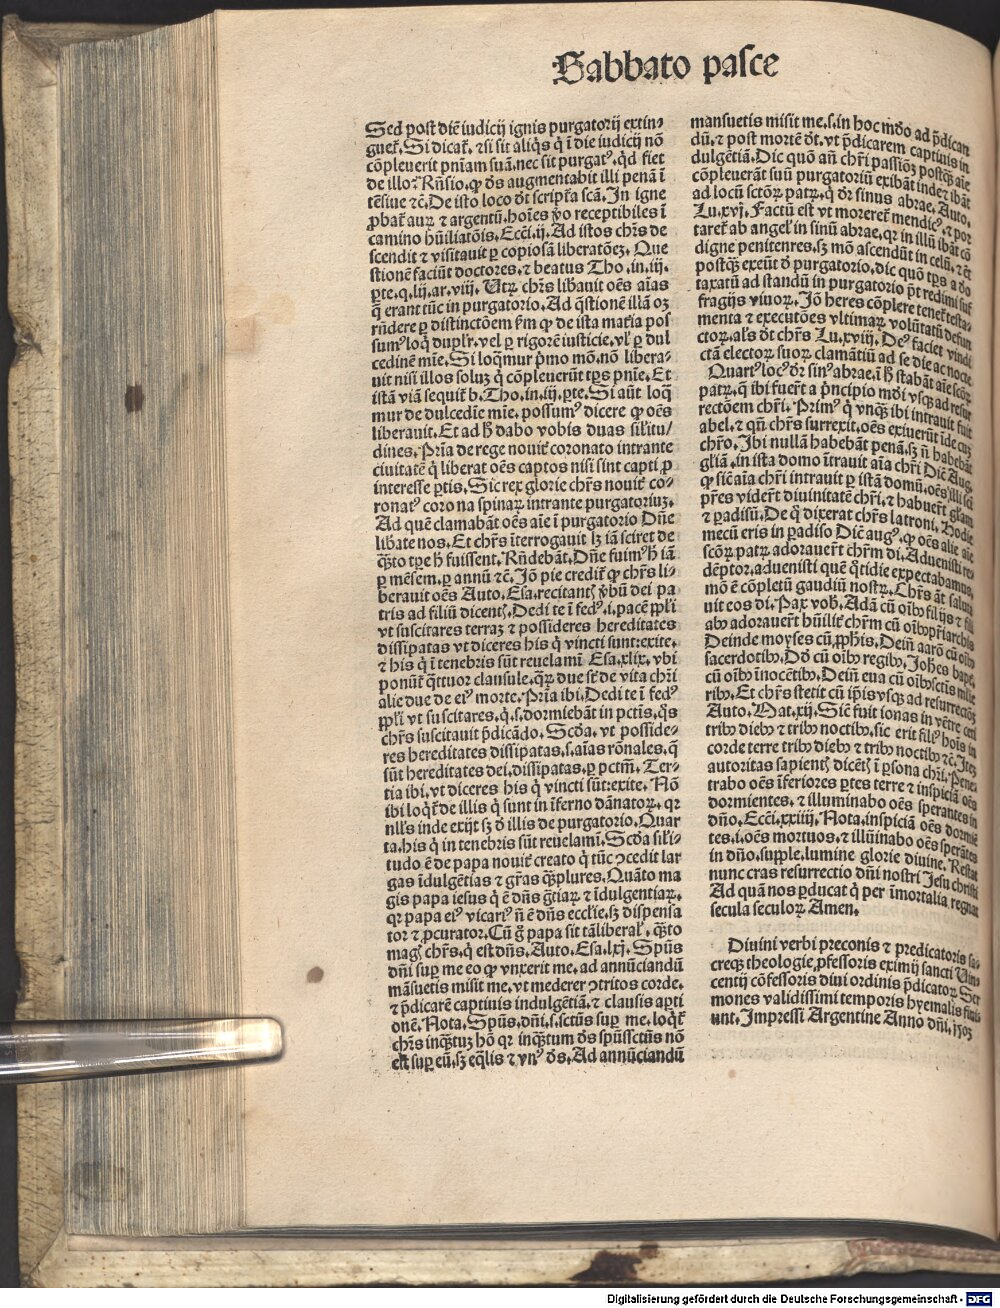 Sabbato pasce
Sed post diē iudicij ignis purgatorij extin⸗
guet̄. Si dicat̄. ⁊ si sit aliq̇s q̇ ī die iudicij nō
cōpleuerit pn̄iam suā. nec sit purgatꝰ. qd̓ fiet
de illo: Rn̄sio. ꝙ d̄s augmentabit illi penā ī
tēsiue ⁊c̄. De isto loco d̄t scriptꝛa scā. In igne
ꝓbat̄ auꝝ ⁊ argentū. hoīes ꝟo receptibiles ī
camino hūiliatōis. Ecci. ij. Ad istos chr̄s de
scendit ⁊ visitauit ꝑ copiosā liberatōeꝫ. Que
stionē faciūt doctores. ⁊ beatus Tho. in. iij.
ꝑte. q. lij. ar. viij. Utꝝ chr̄s libauit oēs aīas
q̄ erant tūc in purgatorio. Ad q̄stionē illā oꝫ
rn̄dere ꝑ distinctōem ẜm ꝙ de ista mat̄ia pos
sumꝰ loq̇ duplr̄. vel ꝑ rigorē iusticie. vl̓ ꝑ dul
cedinē mīe. Si loq̇mur p̄mo mō. nō libera⸗
uit nisi illos soluꝫ q̇ cōpleuerūt tꝑs pn̄ie. Et
istā viā sequit̄ b. Tho. in. iij. ꝑte. Si aūt loq̇
mur de dulcedīe mīe. possumꝰ dicere ꝙ oēs
liberauit. Et ad h̄ dabo vobis duas sil̓itu⸗
dines. Pri̅a de rege nouit̄ coronato intrante
ciuitatē q̇ liberat oēs captos nisi sint capti ꝓ
interesse ꝑtis. Sic rex glorie chr̄s nouit̄ co⸗
ronatꝰ corona spinaꝝ intrante purgatoriuꝫ.
Ad quē clamabāt oēs aīe ī purgatorio Dn̄e
lib̓ate nos. Et chr̄s īterrogauit lꝫ iā sciret de
q̄sto tꝑe h̄ fuissent. Rn̄debāt. Dn̄e fuimꝰ h̄ iā
ꝑ mēsem. ꝑ annū ⁊c̄. Jō pie credit̄ ꝙ chr̄s li⸗
berauit oēs Auto. Esa. recitantꝭ ꝟbū dei pa
tris ad filiū dicentꝭ. Dedi te ī fedꝰ. i. pacē ppl̓i
vt suscitares terraꝫ ⁊ possideres hereditates
dissipatas vt diceres his q̇ vincti sunt: exite.
⁊ his q̇ ī tenebris sūt reuelamī Esa. xlix. vbi
ponūt̄ q̄ttuor clausule. q̄ꝝ due sūt de vita chr̄i
alie due de eiꝰ morte. Pri̅a ibi. Dedi te ī fedꝰ
ppl̓i vt suscitares. q̇. s. dormiebāt in pctīs. q̄s
chr̄s suscitauit p̄dicādo. Scd̓a. vt posside⸗
res hereditates dissipatas. s. aīas rōnales. q̄
sūt hereditates dei. dissipatas. ꝑ pctm̄. Ter⸗
tia ibi. vt diceres his q̇ vincti sūt: exite. Nō
ibi loq̇t̄ de illis q̇ sunt in īferno dānatoꝝ. qꝛ
nll̓s inde exijt sꝫ d̓ illis de purgatorio. Quar
ta. his q̇ in tenebris sūt reuelamī. Scd̓a sil̓i⸗
tudo ē de papa nouit̄ creato q̇ tūc ꝯcedit lar
gas īdulgētias ⁊ gr̄as q̄ꝫplures. Quāto ma
gis papa iesus q̇ ē dn̄s gr̄tiaꝝ ⁊ īdulgentiaꝝ.
qꝛ papa eiꝰ vicariꝰ n̄ ē dn̄s eccl̓ie. sꝫ dispensa
tor ⁊ ꝓcurator. Cū g̊ papa sit tā liberal̓. q̄sto
magꝭ chr̄s. q̇ est dn̄s. Auto. Esa. lxj. Spūs
dn̄i suꝑ me eo ꝙ vnxerit me. ad annūciandū
māsuetis misit me. vt mederer ꝯtritos corde.
⁊ p̄dicarē captiuis indulgētiā. ⁊ clausis aꝑti
onē. Nota. Spūs. dn̄i. s. sctūs suꝑ me. loq̇t̄
chr̄s inq̄ntuꝫ hō qꝛ inq̄ntum d̄s spūssctūs nō
est suꝑ eū. sꝫ eq̄lis ⁊ vnꝰ d̄s. Ad annūciandū
mansuetis misit me. s. in hoc mūdo ad p̄dican
dū. ⁊ post mortē d̄t. vt p̄dicarem captiuis in
dulgētiā. Dic quō an̄ chr̄i passiōꝫ postq̄ꝫ aīe
cōpleuerāt suū purgatoriū exibāt inde ⁊ ibāt
ad locū sctōꝝ patꝝ. q̇ dr̄ sinus abrae. Auto.
Lu. xvj. Factū est vt morerer̄ mendicꝰ. ⁊ por
taret̄ ab angel̓ in sinū abrae. qꝛ in illū ibāt cō
digne penitenres. sꝫ mō ascendūt in celū. ⁊ c̄t
postq̄ꝫ exeūt d̓ purgatorio. dic quō tꝑs a do
taxatū ad standū in purgatorio pt̄ redimi suf
fragijs viuoꝝ. Jō heres cōplere tenet̄ testa⸗
menta ⁊ executōes vltimaꝝ volūtatū defun
ctoꝝ. al̓s d̄t chr̄s Lu. xviij. Deꝰ faciet vindi
ctā electoꝝ suoꝝ clamātiū ad se die ac nocte
Quartꝰ locꝰ dr̄ sinꝰ abrae. ī h̄ stabāt aīe sctōꝝ
patꝝ. q̇ ibi fuer̄t a p̄ncipio mūdi vsqꝫ ad resur
rectōem chr̄i. Primꝰ q̇ vnq̄ꝫ ibi intrauit fuit
abel. ⁊ qn̄ chr̄s surrexit. oēs exiuerūt īde cuꝫ
chr̄o. Ibi nullā habebāt penā. sꝫ n̄ habebāt
gl̓iā. in ista domo ītrauit aīa chr̄i Dic̄ Aug.
ꝙ sic̄ aīa chr̄i intrauit ꝑ istā domū. oēs illi scī
pr̄es vider̄t diuinitatē chr̄i. ⁊ habuer̄t gl̓iam
⁊ ꝑadisū. De q̇ dixerat chr̄s latroni. Hodie
mecū eris in ꝑadiso Dic̄ augꝰ. ꝙ oēs alie aīe
scōꝝ patꝝ adorauer̄t chr̄m di. Aduenisti re
dēptor. aduenisti quē q̇tidie expectabamus.
mō ē cōpletū gaudiū nostꝝ. Chr̄s āt saluta
uit eos di. Pax vob̓. Adā cū oībꝰ filijs ⁊ fili
abꝰ adorauer̄t hūilit̄ chr̄m cū oībꝰ pr̄iarchis
Deinde moyses cū ꝓphis. Dein̄ aarō cū oībꝰ
sacerdotibꝰ. Dd̓ cū oībꝰ regibꝰ. Joh̄es bapt.
cū oībꝰ īnocētibꝰ. Dein̄ eua cū oībꝰ sctīs mlie
ribꝰ. Et chr̄s stetit cū ip̄is vsqꝫ ad resurrectōꝫ
Auto. Mat. xij. Sic̄ fuit ionas in vētre ceti
tribꝰ diebꝰ ⁊ tribꝰ noctibꝰ. sic erit filiꝰ hoīs in
corde terre tribꝰ diebꝰ ⁊ tribꝰ noctibꝰ ⁊c̄. Iteꝫ
autoritas sapientꝭ dicētꝭ ī ꝑsona chr̄i. Pene
trabo oēs īferiores ꝑtes terre ⁊ inspiciā oēs
dormientes. ⁊ illuminabo oēs sperantes in
dn̄o. Ecci. xxiiij. Nota. inspiciā oēs dormiē
tes. i. oēs mortuos. ⁊ illūinabo oēs sperātes
in dn̄o. supple. lumine glorie diuine. Restat
nunc cras resurrectio dn̄i nostri Jesu christi
Ad quā nos ꝑducat q̇ per īmortalia regnat
secula seculoꝝ Amen.
Diuini verbi preconis ⁊ predicatoris sa⸗
creqꝫ theologie ꝓfessoris eximij sancti Uin⸗
centij cōfessoris diui ordinis p̄dicatoꝝ Ser
mones validissimi temporis hyemalis fini⸗
unt. Impressi Argentine Anno dn̄i. 1503
Digitalisierung gefördert durch die Deutsche Forschungsgemeinschaft - DFG